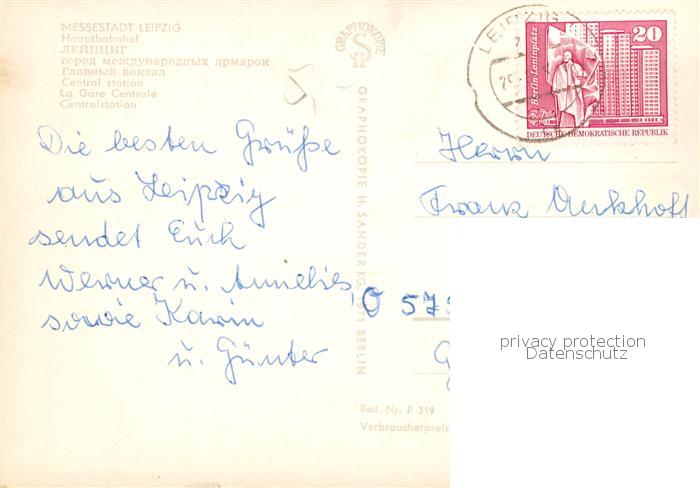 MESSESTADT LEIPZIG
Hauptbahnhof
ЛЕЙПЦИГ
город международных ярмарок
Главный вокзал
Central station
La Gare Centrale
Centralstation
Die besten Grüße
aus Leipzig
sendet Euch
Werner u. Annelies
sowie Karin
u. Günter
GRAPHOKOPIE
GRAPHOKOPIE H. SANDER KG, 1071 BERLIN
Best.-Nr. P 319
Verbraucherpreis
LEIPZIG
Berlin-Leninplatz
20
DEUTSCHE DEMOKRATISCHE REPUBLIK
Herrn
Frank
O 575
G
privacy protection
Datenschutz